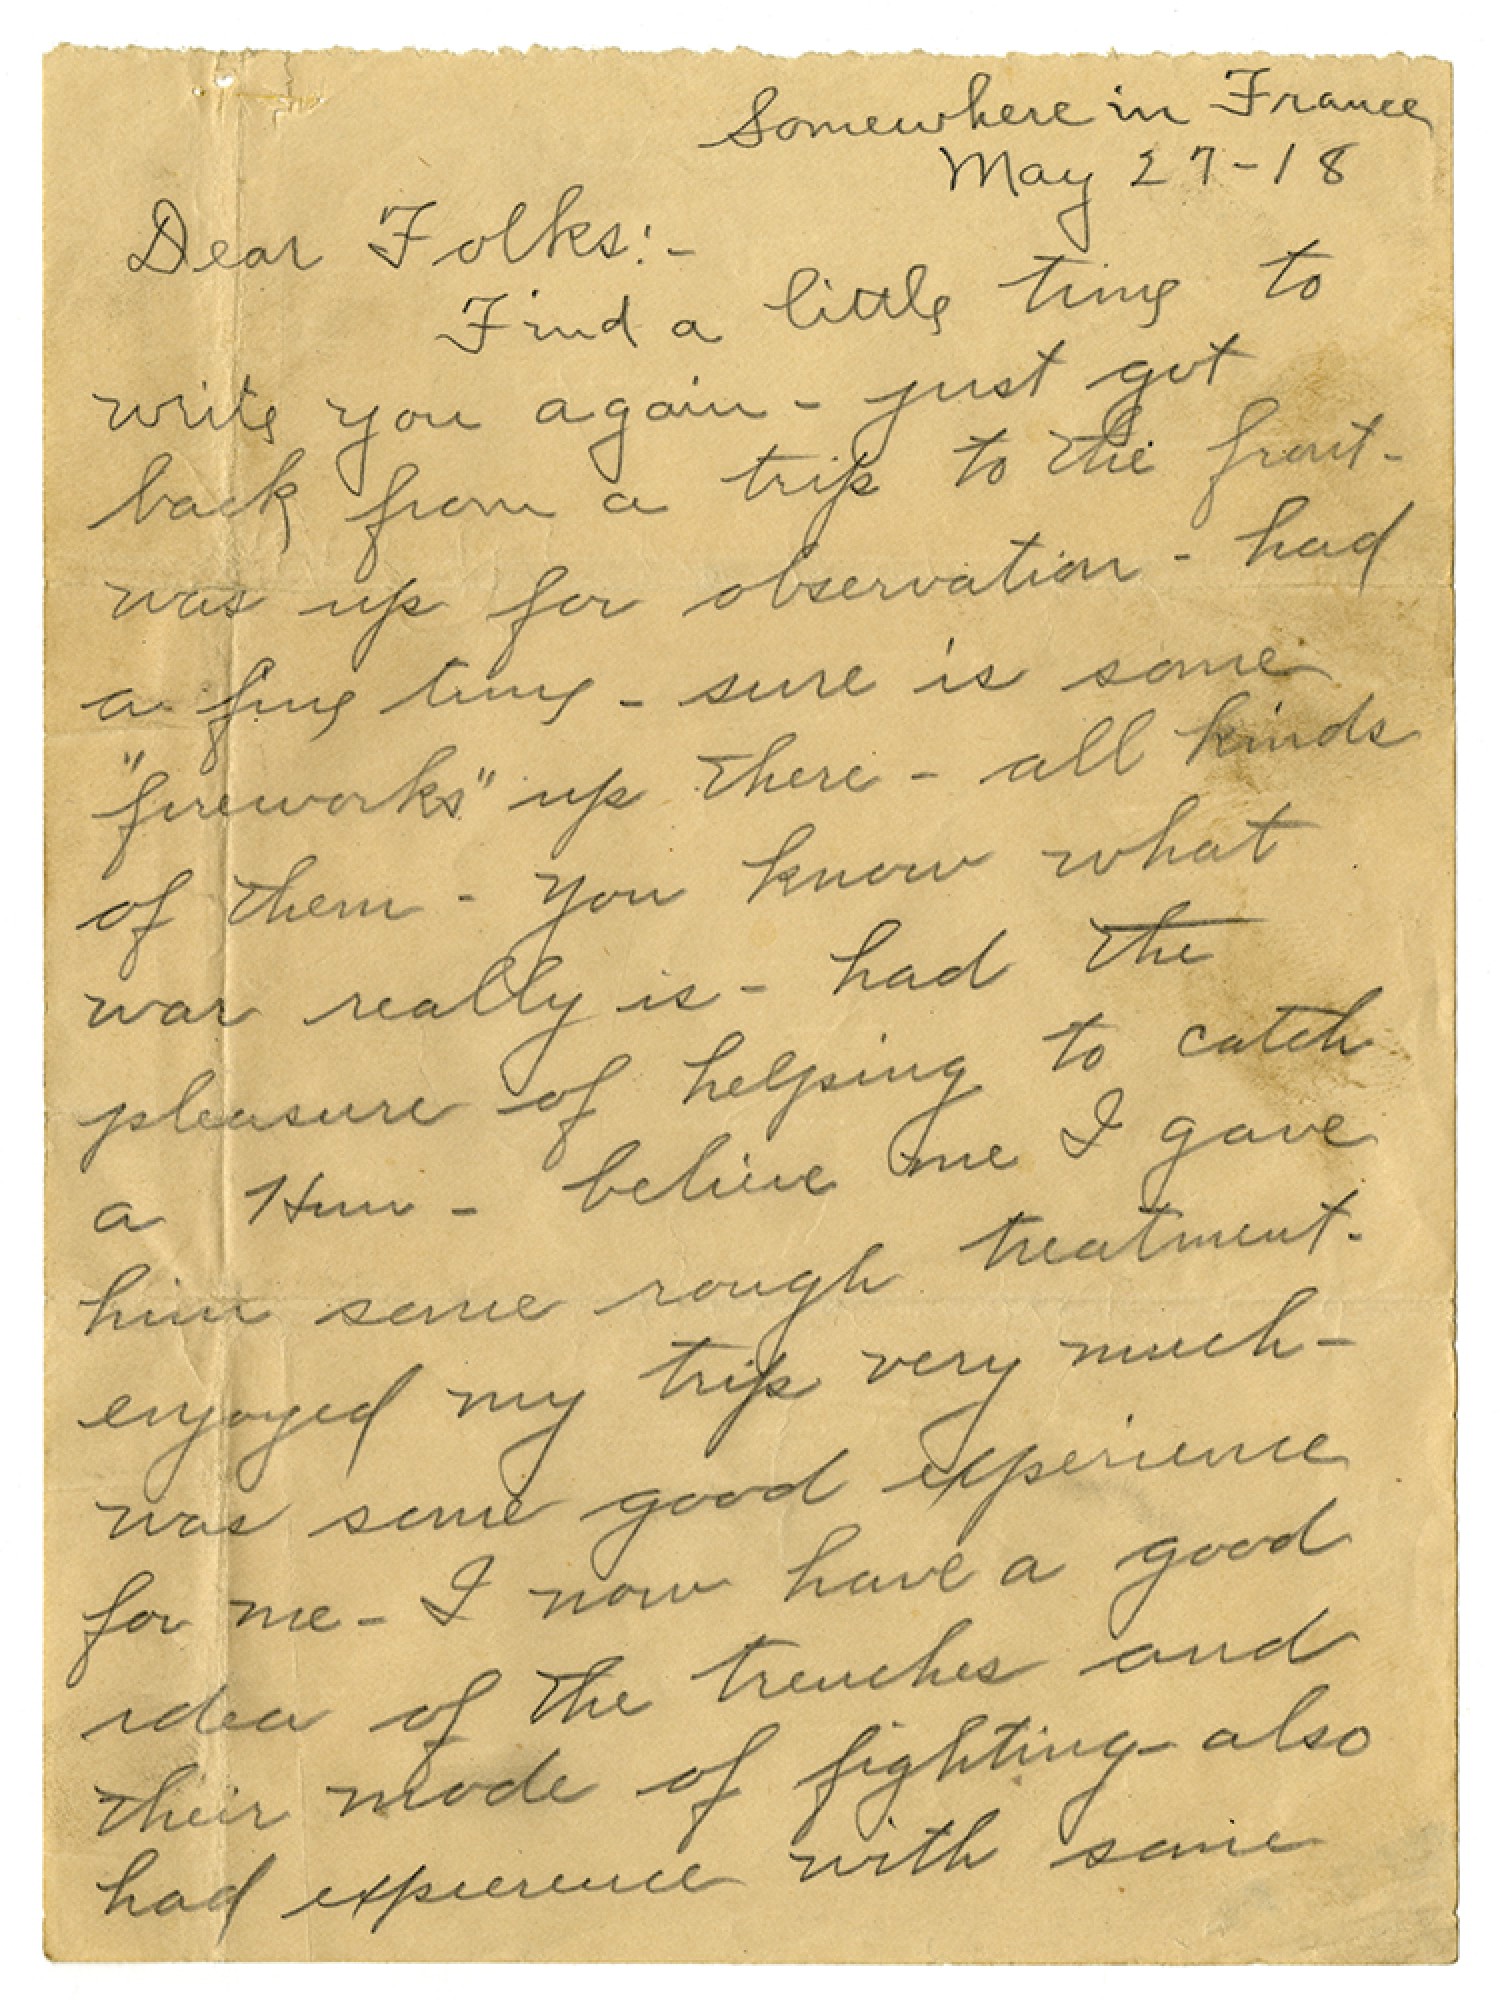 Somewhere in France
May 27-18
Dear Folks:-
Find a little time to
write you again - just got
back from a trip to the front -
was up for observation - had
a fine time - sure is some
"fireworks" up there - all kinds
of them - you know what
war really is - had the
pleasure of helping to catch
a Hun - believe me I gave
him some rough treatment -
enjoyed my trip very much -
was some good experience
for me - I now have a good
idea of the trenches and
their mode of fighting - also
had experience with some